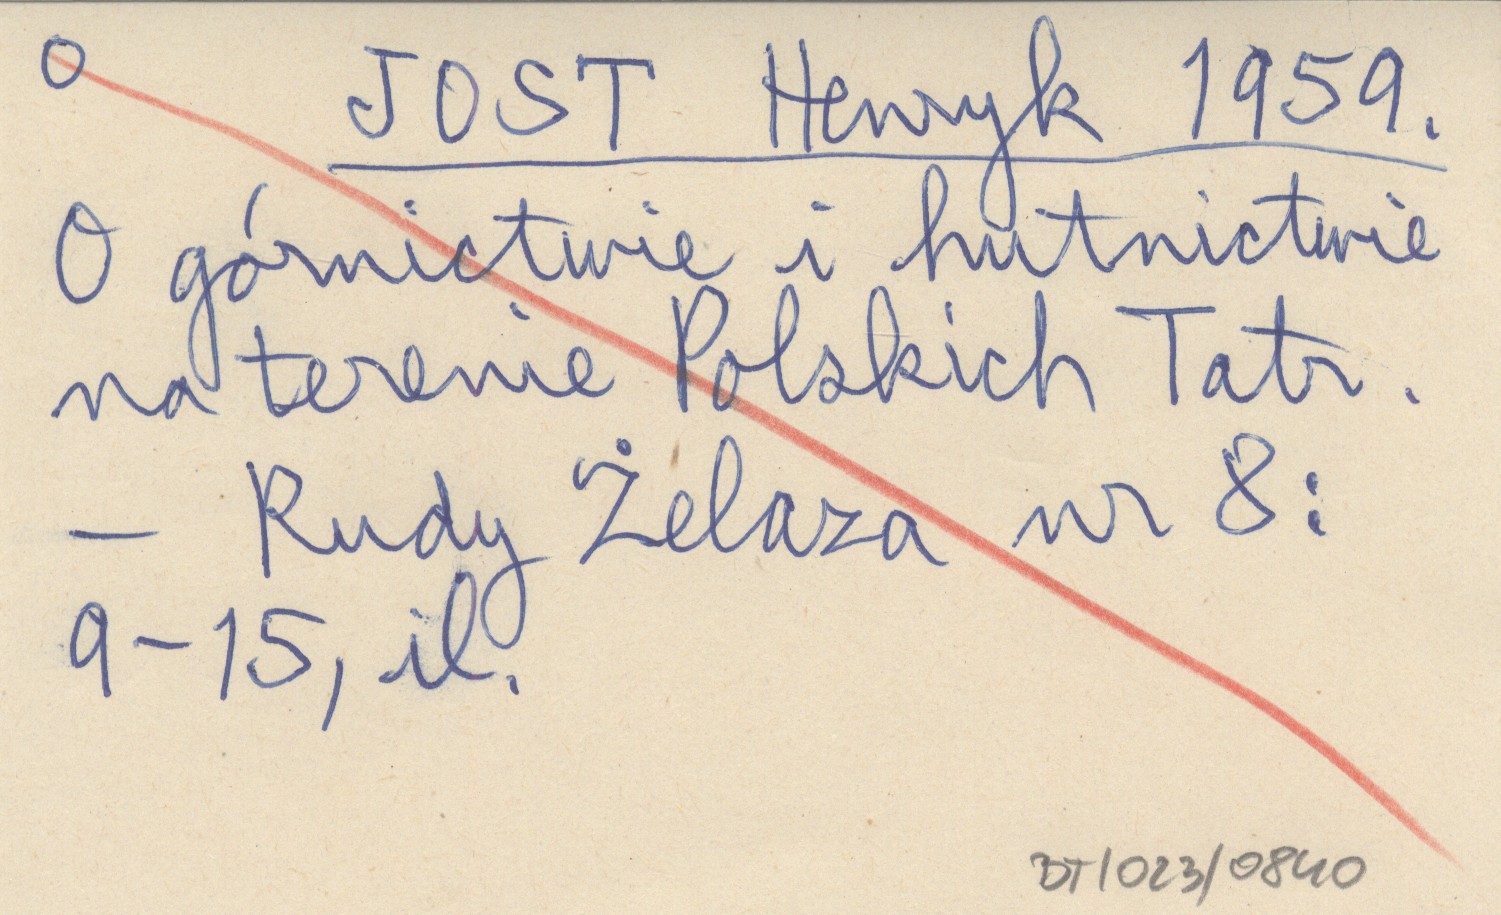 O JOST Henryk 1959.
O górnictwie i hutnictwie
na terenie Polskich Tatr.
– Rudy Żelaza nr 8:
9–15, il.
DT/023/0840